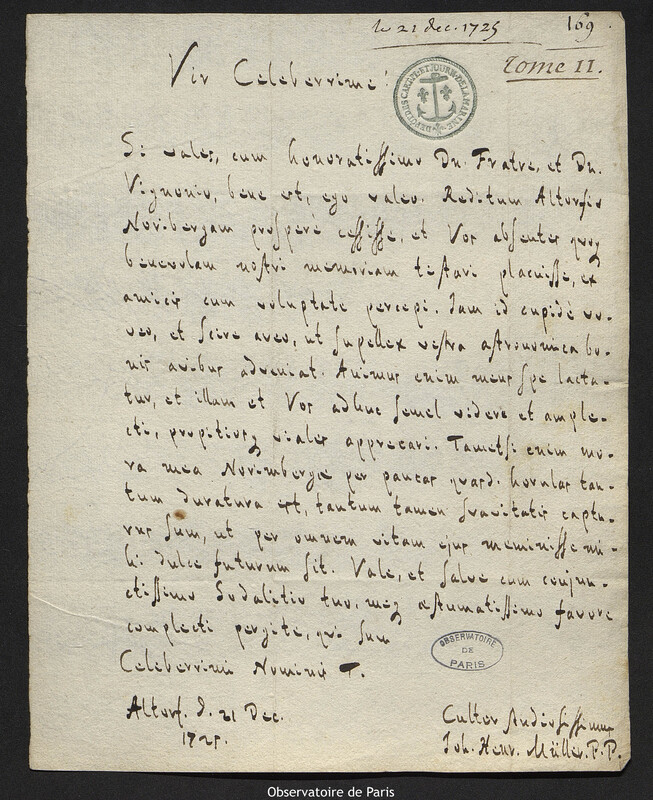 le 21 dec. 1725
169.
Tome II.
Vir Celeberrime!
DÉPÔT DES CARTES ET JOURN. DE LA MARINE
Si vales, cum honoratissimo Dn. Fratre, et Dn.
Vignonio, bene est, ego valeo. Reditum Altorfio
Noribergam prosperè cessisse, et Vos absentes quoq
benevolam nostri memoriam testari placuisse, ex
amicis cum voluptate percepi. Jam id cupidè vo-
veo, et scire aveo, ut supellex vestra astronomica bo-
nis avibus adveniat. Animus enim meus spe lacta-
tur, et illam et Vos adhuc semel videre et ample-
cti, propitiosq viales apprecari. Tametsi enim mo-
ra mea Norimbergæ per paucas quasd. horulas tan-
tum duratura est, tantum tamen suavitatis captu-
rus sum, ut per omnem vitam ejus meminisse mi-
hi dulce futurum sit. Vale, et salve cum conjun-
ctissimo Sodalitio tuo, meq æstumatissimo favore
complecti pergite, qui sum
Celeberrimi Nominis T.
OBSERVATOIRE
DE
PARIS
Altorf. d. 21 Dec.
1725.
Cultor
Joh. Henr. Müller. P. P.
Observatoire de Paris